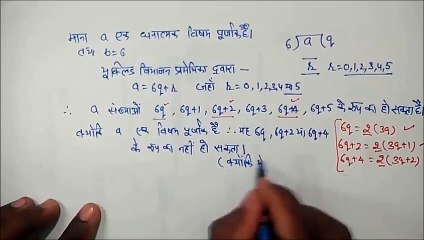 माना a एक धनात्मक विषम पूर्णांक है।
तथा b=6
6)a(q
r r=0,1,2,3,4,5
यूक्लिड विभाजन प्रमेयिका द्वारा -
a = 6q+r जहाँ r = 0,1,2,3,4 या 5
∴ a संख्याओं 6q, 6q+1, 6q+2, 6q+3, 6q+4, 6q+5 के रूप का हो सकता है।
क्योंकि a एक विषम पूर्णांक है ∴ यह 6q, 6q+2 या 6q+4
के रूप का नहीं हो सकता।
(क्योंकि
6q = 2(3q)
6q+2 = 2(3q+1)
6q+4 = 2(3q+2)